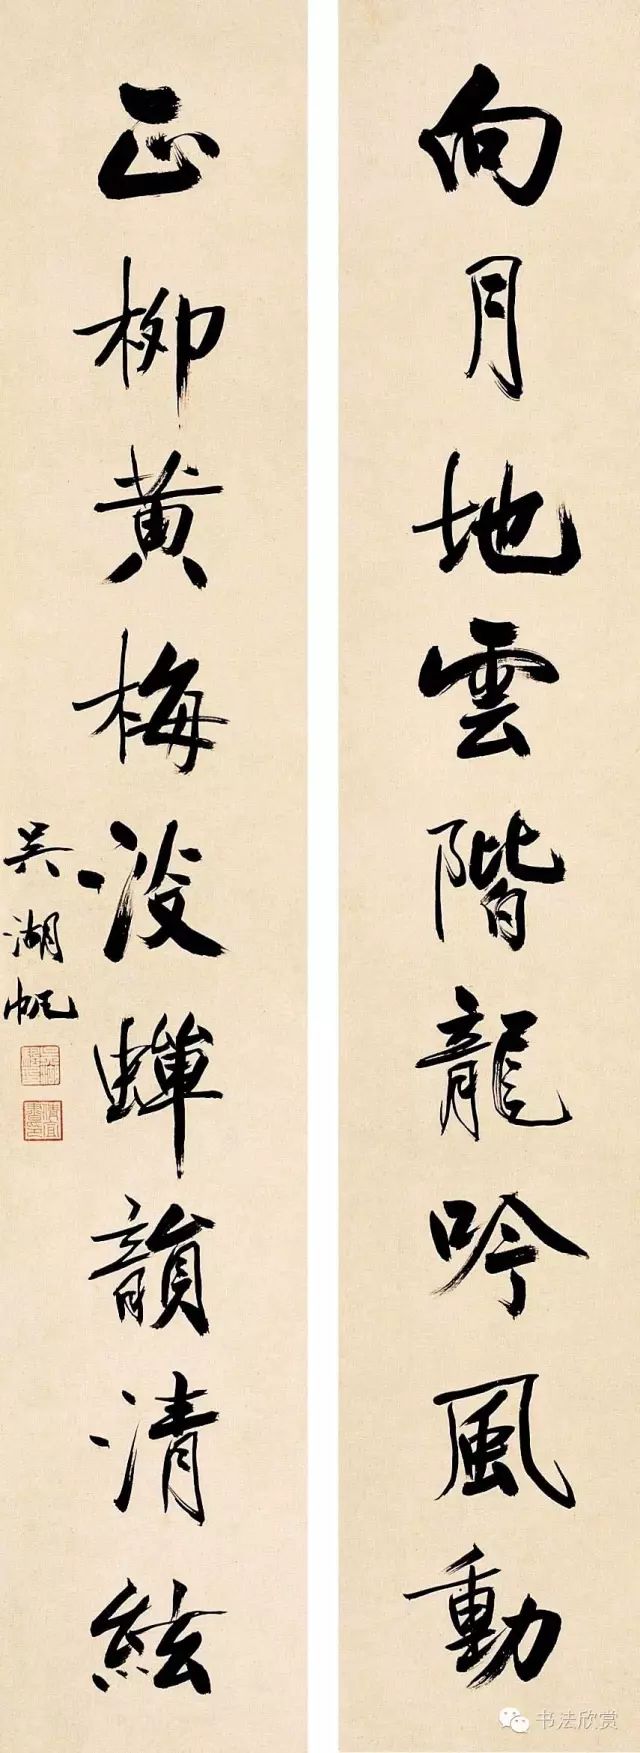 向月地雲階龍吟風動
正柳黄梅淺蟬韻清絃
吳湖帆
书法欣赏